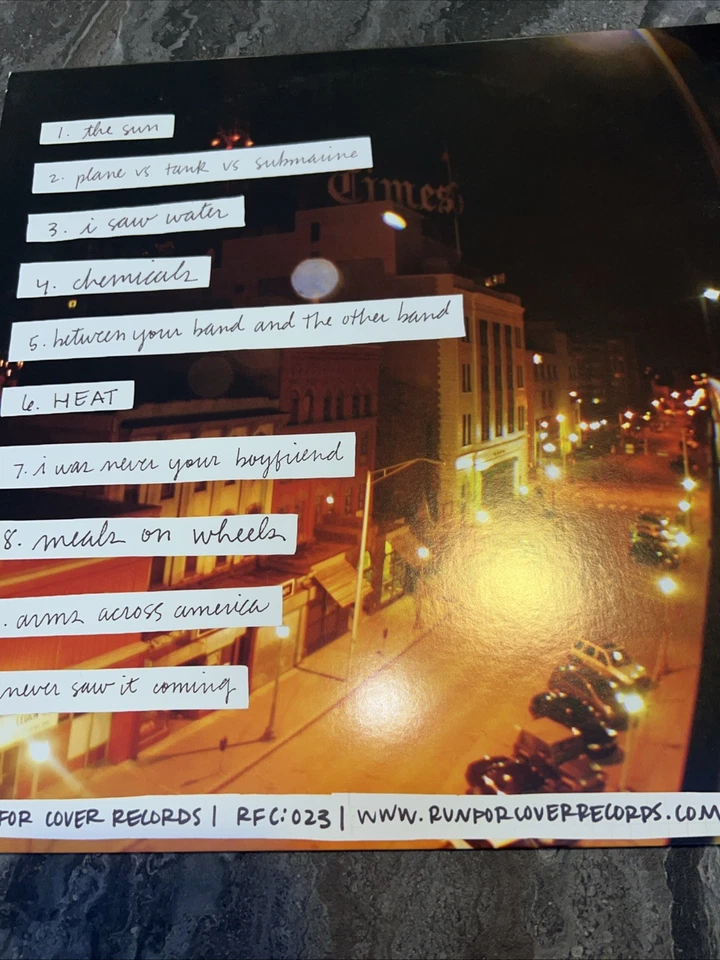 1. the sun
2. plane vs tank vs submarine
Times
3. i saw water
4. chemicals
5. between your band and the other band
6. HEAT
7. i was never your boyfriend
8. meals on wheels
. arms across america
never saw it coming
FOR COVER RECORDS | RFC:023 | WWW.RUNFORCOVERRECORDS.COM